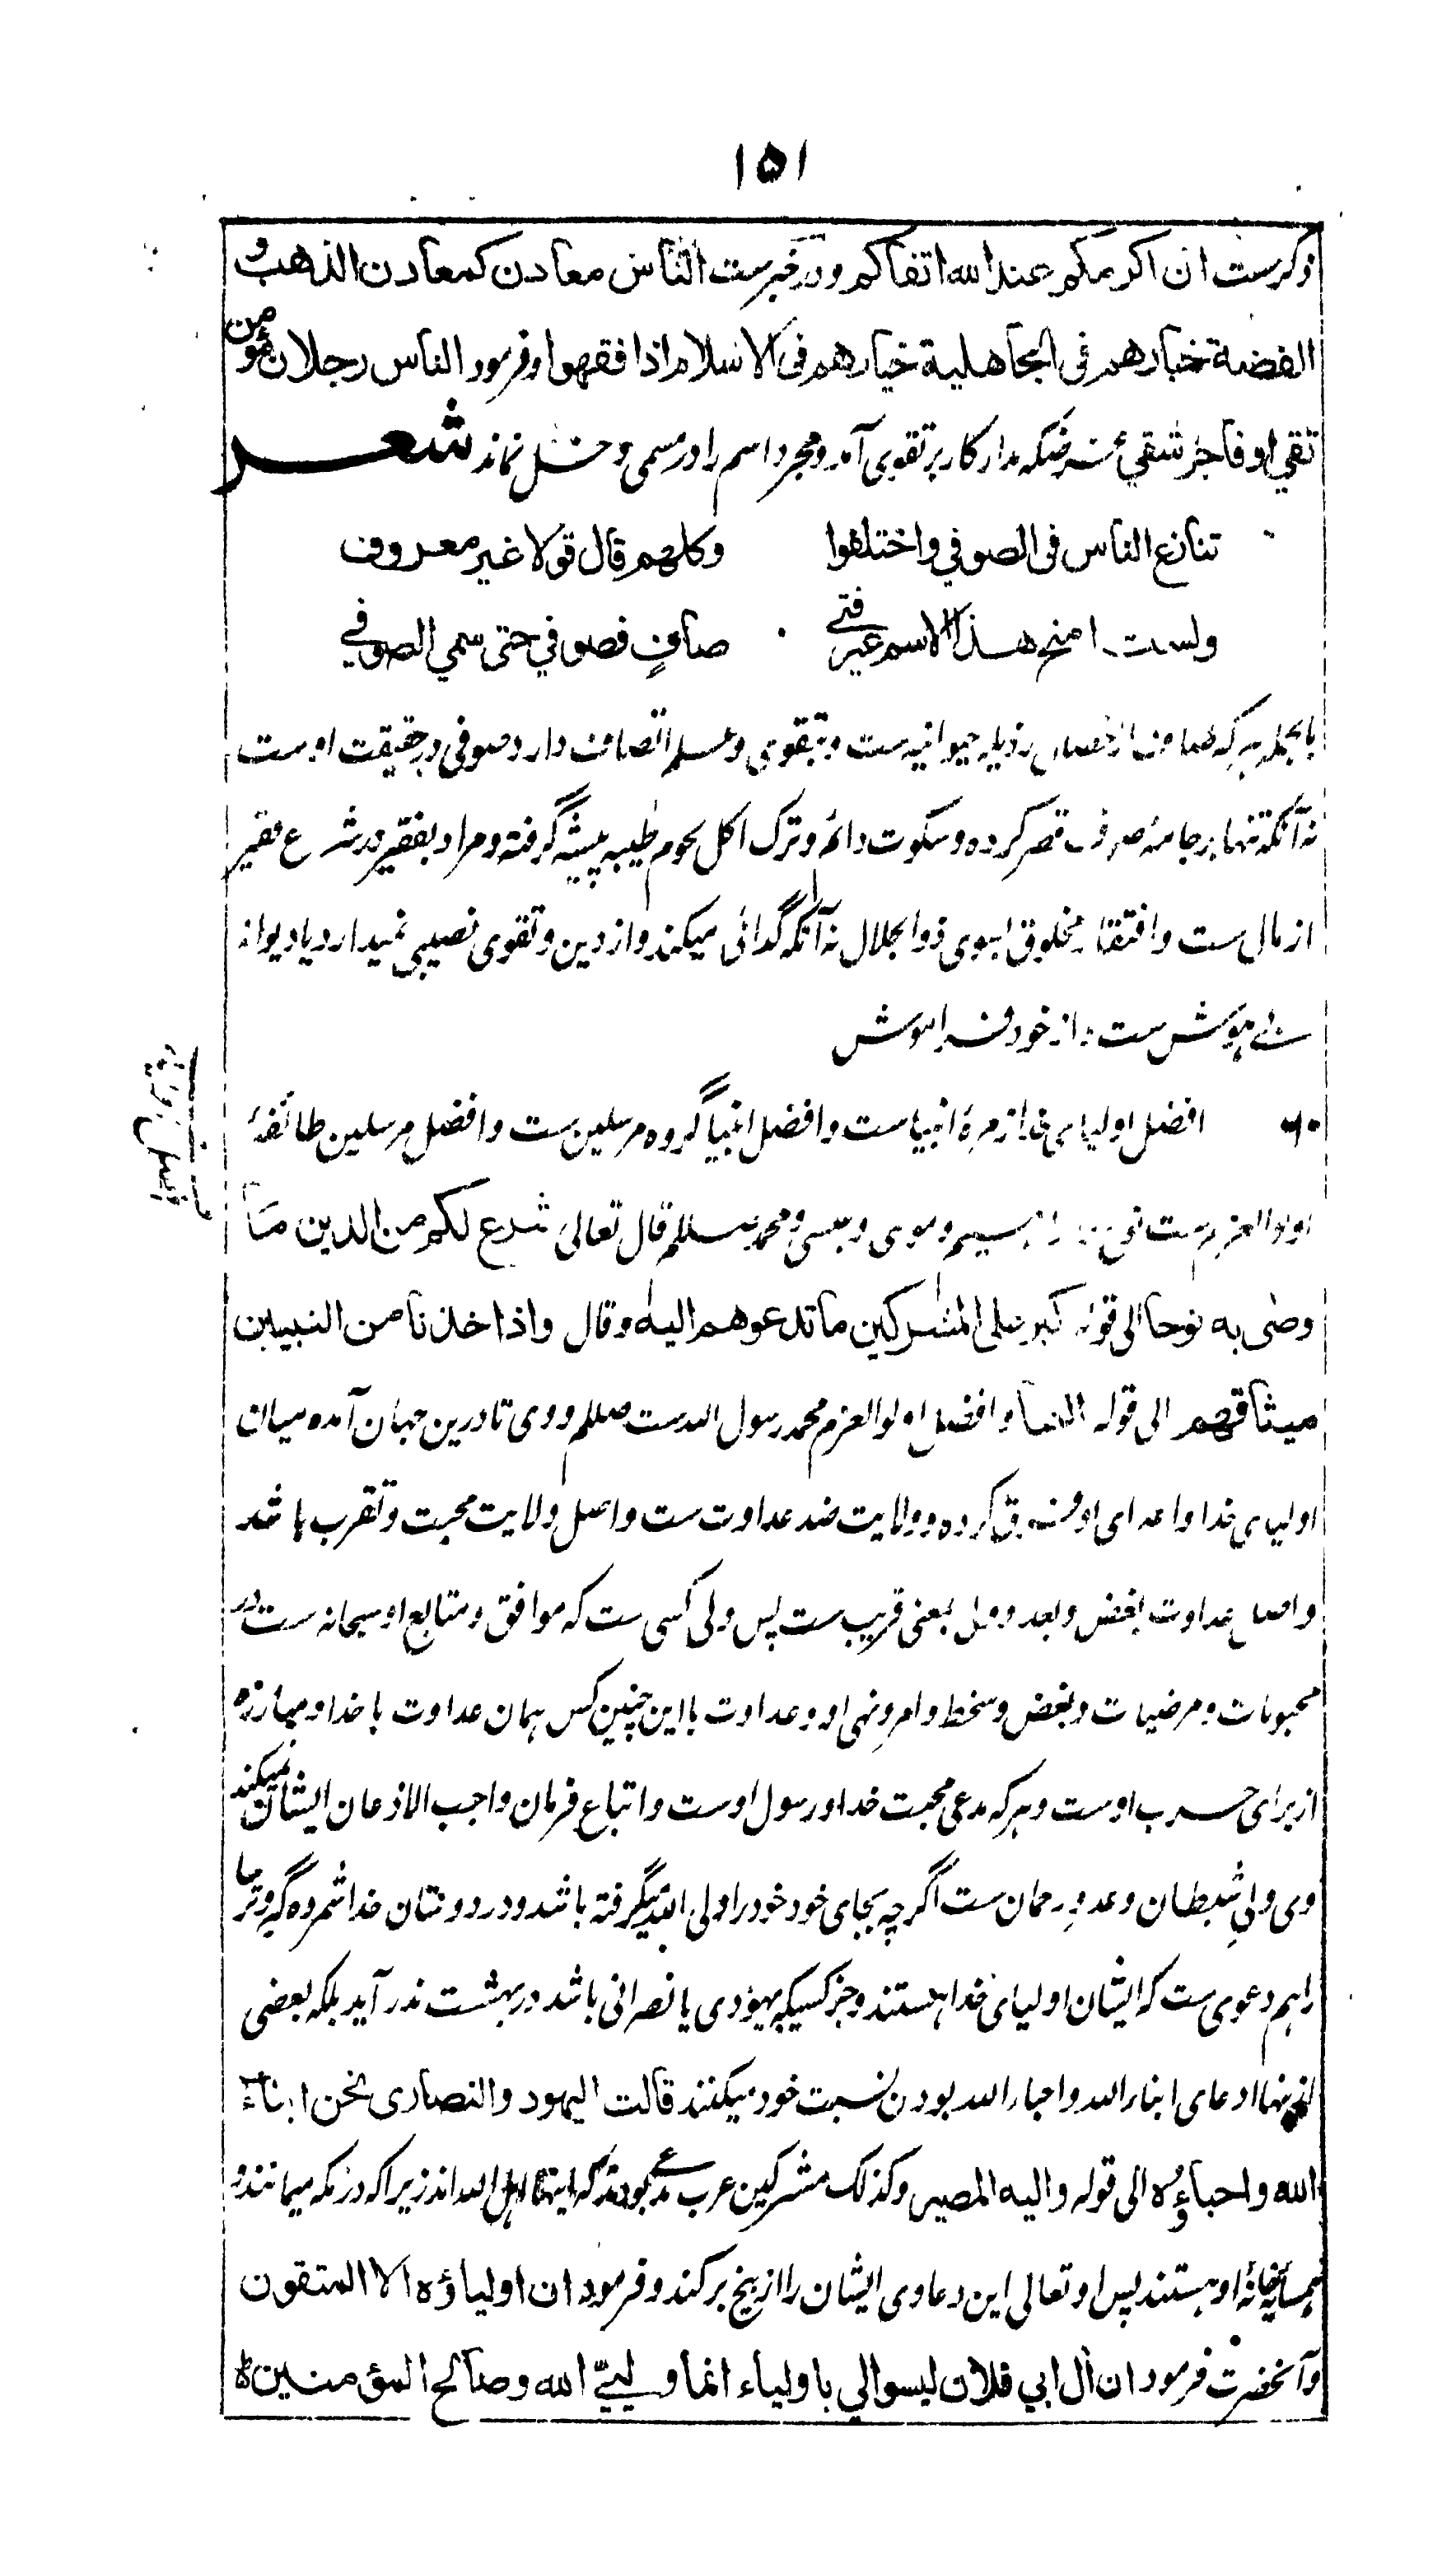 ۱۵۱
ذکرست ان اکرمکم عند الله اتقاکم و در خبرست الناس معادن کمعادن الذهب و
الفضة خیارهم فی الجاهلیة خیارهم فی الاسلام اذا فقهوا و فرمود الناس رجلان مؤمن
تقی او فاجر شقی غرضکه مدار کار بر تقوی آمد و مجرد اسم را در مسمی دخل نماند شعر
تنازع الناس فی الصوفی واختلفوا وکلهم قال قولا غیر معروف
ولست امنح هذا الاسم غیر فتی صافٍ فصوفی حتی سمی الصوفی
بالجمله هر که صاف از خصال رذیله حیوانیه ست و بتقوی و علم اتصاف دارد صوفی در حقیقت اوست
نه آنکه تنها بر جامۀ صوف قصر کرده و سکوت دائم و ترک اکل لحوم طیبه پیشه گرفته و مراد بفقیر در شرع فقیر
از مال ست و افتقار مخلوق بسوی ذوالجلال نه آنکه گدائی میکند و از دین و تقوی نصیبی نمیدارد یا دیوانه
بی هوش ست و از خود فراموش
افضل اولیای خدا زمرۀ انبیاست و افضل انبیا گروه مرسلین ست و افضل مرسلین طائفۀ
اولوالعزم ست نوح و ابراهیم و موسی و عیسی و محمد صلعم قال تعالی شرع لکم من الدین ما
وصی به نوحا الی قوله کبر علی المشرکین ما تدعوهم الیه و قال واذ اخذنا من النبیین
میثاقهم الی قوله و افضل اولوالعزم محمد رسول الله ست صلعم و وی تا درین جهان آمده میان
اولیای خدا و اعدای او فرق کرده و ولایت ضد عداوت ست و اصل ولایت محبت و تقرب باشد
و اصل عداوت بغض و بعد و ولی بمعنی قریب ست پس ولی کسی ست که موافق و متابع او سبحانه ست در
محبوبات و مرضیات و بغض و سخط و امر و نهی او و عداوت با این چنین کس همان عداوت با خدا و مبارزه
از برای حرب اوست و هر که مدعی محبت خدا و رسول اوست و اتباع فرمان واجب الاذعان ایشان نمیکند
وی ولیِ شیطان و عدوِ رحمان ست اگرچه بجای خود خود را ولی الله میگرفته باشد و در دوستان خدا شمرده گبر و ترسا
را هم دعوی ست که ایشان اولیای خدا هستند و جز کسیکه یهودی یا نصرانی باشد در بهشت ندر آید بلکه بعضی
از ینها ادعای ابناء الله و احباء الله بودن نسبت خود میکنند قالت الیهود والنصاری نحن ابناء
الله واحباؤه الی قوله والیه المصیر وکذلک مشرکین عرب مدعی بودند که اینها اهل الله اند زیرا که در مکه میمانند و
همسایۀ خانۀ او هستند پس او تعالی این دعاوی ایشان را از بیخ برکند و فرمود ان اولیاؤه الا المتقون
و آنحضرت فرمود ان آل ابی فلان لیسوا لی باولیاء انما ولیی الله وصالح المؤمنین